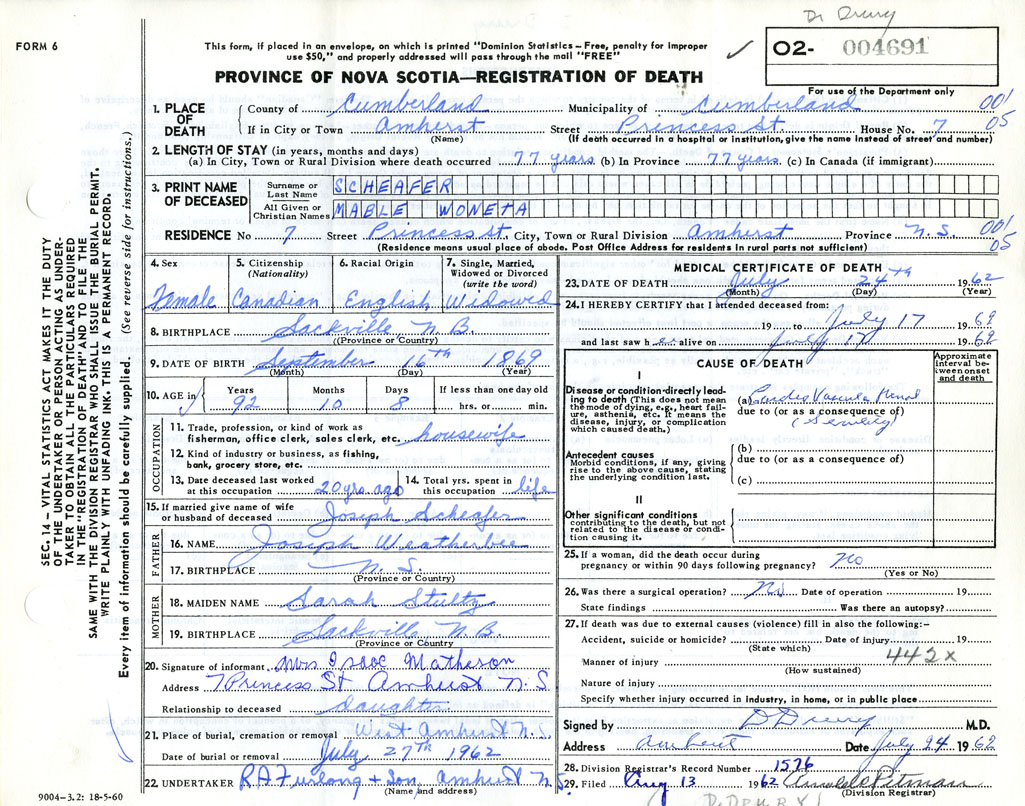 Dr Drury
FORM 6
This form, if placed in an envelope, on which is printed "Dominion Statistics – Free, penalty for improper
use $50," and properly addressed will pass through the mail "FREE"
✓
02- 004691
For use of the Department only
PROVINCE OF NOVA SCOTIA—REGISTRATION OF DEATH
1. PLACE OF DEATH
County of Cumberland Municipality of Cumberland 001
If in City or Town Amherst Street Princess St. House No. 7 05
(Name) (If death occurred in a hospital or institution, give the name instead of street and number)
2. LENGTH OF STAY (in years, months and days)
(a) In City, Town or Rural Division where death occurred 77 years (b) In Province 77 years (c) In Canada (if immigrant)
3. PRINT NAME OF DECEASED
Surname or Last Name SCHEAFER
All Given or Christian Names MABLE WONETA
RESIDENCE No 7 Street Princess St. City, Town or Rural Division Amherst Province N.S. 001
05
(Residence means usual place of abode. Post Office Address for residents in rural parts not sufficient)
4. Sex
Female
5. Citizenship
(Nationality)
Canadian
6. Racial Origin
English
7. Single, Married,
Widowed or Divorced
(write the word)
Widowed
8. BIRTHPLACE Sackville N.B.
(Province or Country)
9. DATE OF BIRTH September 16th 1869
(Month) (Day) (Year)
10. AGE in ✓
Years Months Days If less than one day old
92 10 8 hrs. or min.
OCCUPATION
11. Trade, profession, or kind of work as
fisherman, office clerk, sales clerk, etc. housewife
12. Kind of industry or business, as fishing,
bank, grocery store, etc.
13. Date deceased last worked
at this occupation 20 yrs ago
14. Total yrs. spent in
this occupation life
15. If married give name of wife
or husband of deceased Joseph Scheafer
FATHER
16. NAME Joseph Weatherbee
17. BIRTHPLACE N.S.
(Province or Country)
MOTHER
18. MAIDEN NAME Sarah Stultz
19. BIRTHPLACE Sackville N.B.
(Province or Country)
20. Signature of informant Mrs Isaac Matheson
Address 7 Princess St Amherst N.S
Relationship to deceased daughter
21. Place of burial, cremation or removal West Amherst N.S.
Date of burial or removal July 27th 1962
22. UNDERTAKER R A Furlong + Son Amherst N.S.
(Name and address)
9004–3.2: 18-5-60
SEC. 14 – VITAL STATISTICS ACT MAKES IT THE DUTY
OF THE UNDERTAKER OR PERSON ACTING AS UNDER-
TAKER TO OBTAIN ALL THE PARTICULARS REQUIRED
IN THE "REGISTRATION OF DEATH" AND TO FILE THE
SAME WITH THE DIVISION REGISTRAR WHO SHALL ISSUE THE BURIAL PERMIT.
WRITE PLAINLY WITH UNFADING INK. THIS IS A PERMANENT RECORD.
Every item of information should be carefully supplied. (See reverse side for instructions.)
MEDICAL CERTIFICATE OF DEATH
23. DATE OF DEATH July 24th 1962
(Month) (Day) (Year)
24. I HEREBY CERTIFY that I attended deceased from:
19 to July 17 1962
and last saw her alive on July 17 1962
CAUSE OF DEATH
Approximate
interval be-
tween onset
and death
I
Disease or condition directly lead-
ing to death (This does not mean
the mode of dying, e.g., heart fail-
ure, asthenia, etc. It means the
disease, injury, or complication
which caused death.)
(a) Cardio Vascular Renal
due to (or as a consequence of)
(Senility)
Antecedent causes
Morbid conditions, if any, giving
rise to the above cause, stating
the underlying condition last.
(b)
due to (or as a consequence of)
(c)
II
Other significant conditions
contributing to the death, but not
related to the disease or condi-
tion causing it.
25. If a woman, did the death occur during
pregnancy or within 90 days following pregnancy? No
(Yes or No)
26. Was there a surgical operation? No Date of operation 19
State findings Was there an autopsy?
27. If death was due to external causes (violence) fill in also the following:-
Accident, suicide or homicide? Date of injury 19
(State which)
442x
Manner of injury
(How sustained)
Nature of injury
Specify whether injury occurred in industry, in home, or in public place
Signed by D Drury M.D.
Address Amherst Date July 24 1962
28. Division Registrar's Record Number 1576
29. Filed Aug 13 1962 Pitman
(Division Registrar)